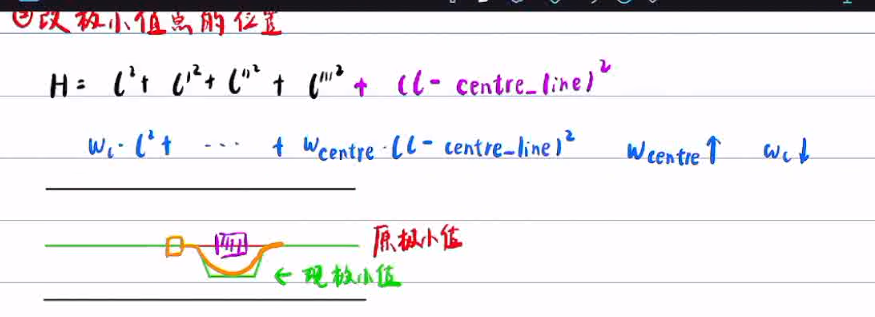 ②改极小值点的位置
H = l² + l'² + l''² + l'''² + (l - centre_line)²
w_l · l² + ··· + w_centre · (l - centre_line)² w_centre↑ w_l↓
原极小值
← 现极小值